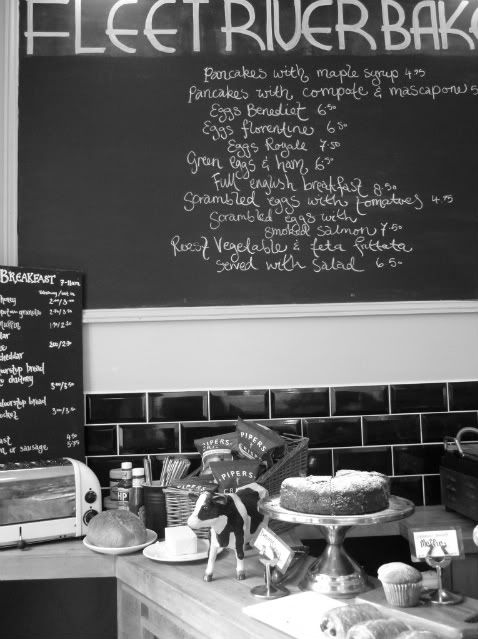 FLEET RIVER BAKE
Pancakes with maple syrup 4.95
Pancakes with compote & mascapone 5
Eggs Benedict 6.50
Eggs florentine 6.50
Eggs Royale 7.50
Green eggs & ham 6.50
Full english breakfast 8.50
Scrambled eggs with tomatoes 4.95
Scrambled eggs with
smoked salmon 7.50
Roast Vegetable & feta frittata
served with salad 6.50
BREAKFAST 7-11am
honey
granola
muffin
cheddar
doorstop bread
chutney
doorstop bread
4.50
or sausage 5.95
PIPERS
PIPERS
PIPERS
HP
Muffin